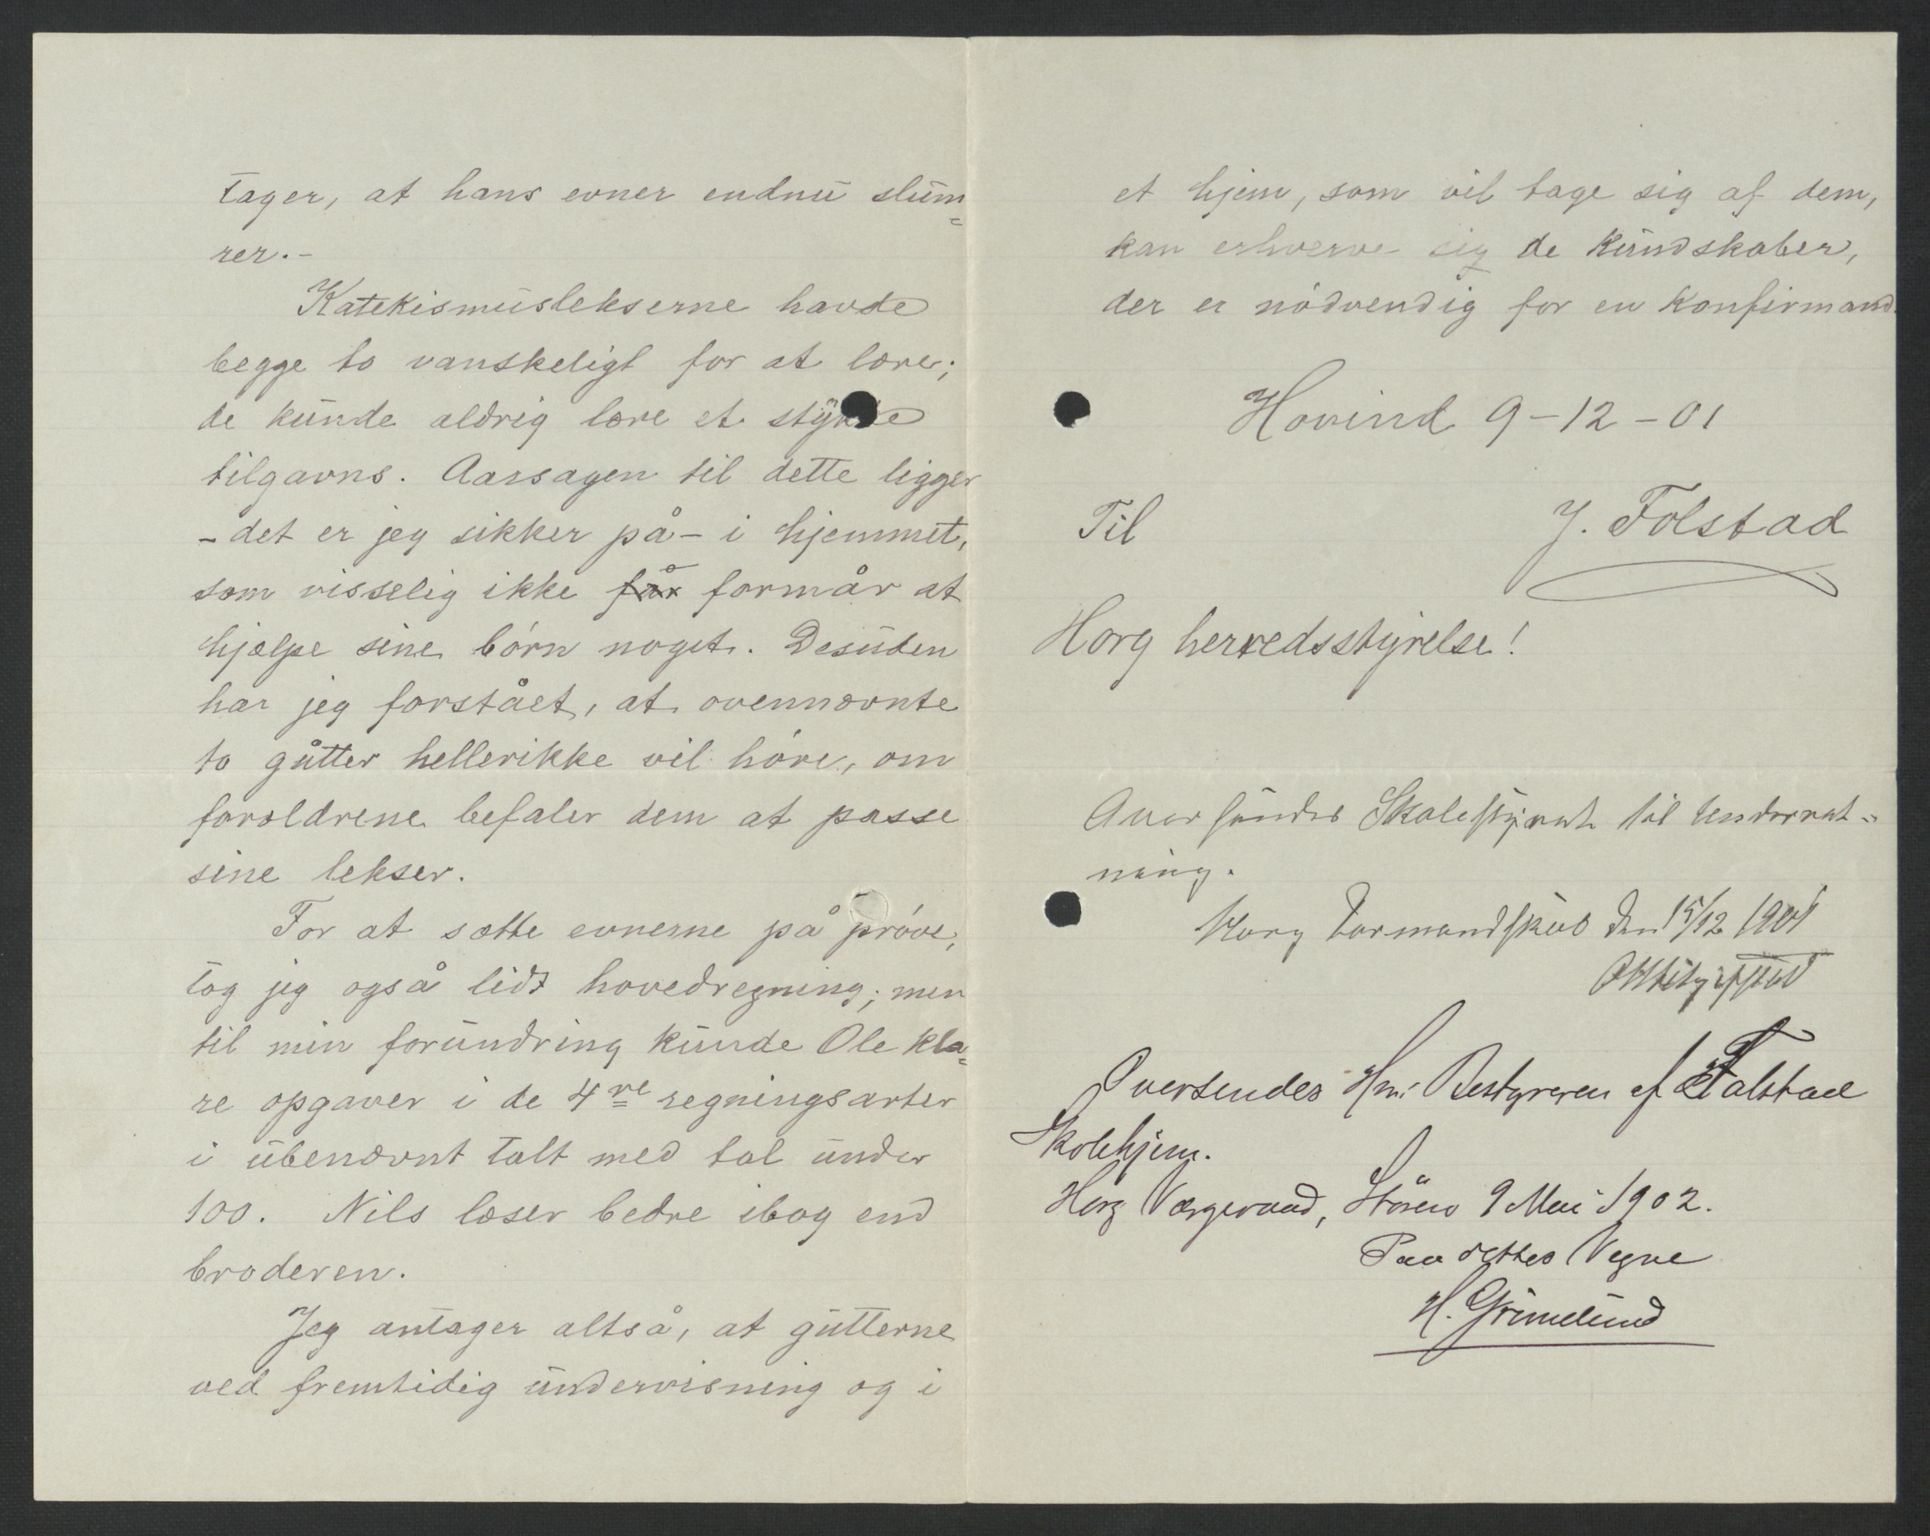 tager, at hans evner endnu slum=
rer.-
Katekismuslekserne havde
begge to vanskeligt for at lære;
de kunde aldrig lære et stykke
tilgavns. Aarsagen til dette ligger
- det er jeg sikker på - i hjemmet,
som visselig ikke får formår at
hjælpe sine børn noget. Desuden
har jeg forstået, at ovennævnte
to gutter hellerikke vil høre, om
forældrene befaler dem at passe
sine lekser.
For at sætte evnerne på prøve,
tog jeg også lidt hovedregning; men
til min forundring kunde Ole kla=
re opgaver i de 4re regningsarter
i ubenævnt talt med tal under
100. Nils læser bedre ibog end
broderen.
Jeg antager altså, at gutterne
ved fremtidig undervisning og i
et hjem, som vil tage sig af dem,
kan erhverve sig de kundskaber,
der er nødvendig for en konfirmand.
Hovind 9-12-01
J. Folstad
Til
Horg herredsstyrelse!
Oversendes Skolestyret til Underret-
ning.
Horg Formandskab den 15/12 1901
Oversendes Hr. Bestyreren af Falstad
Skolehjem.
Horg Værgeraad, Støren 9 Mai 1902.
Paa dettes Vegne
H. Grimelund